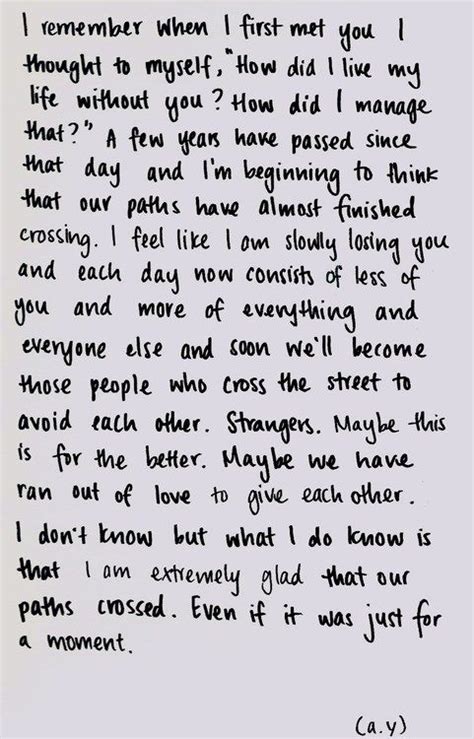 I remember when I first met you I
thought to myself, "How did I live my
life without you? How did I manage
that?" A few years have passed since
that day and I'm beginning to think
that our paths have almost finished
crossing. I feel like I am slowly losing you
and each day now consists of less of
you and more of everything and
everyone else and soon we'll become
those people who cross the street to
avoid each other. Strangers. Maybe this
is for the better. Maybe we have
ran out of love to give each other.
I don't know but what I do know is
that I am extremely glad that our
paths crossed. Even if it was just for
a moment.
(a.y)